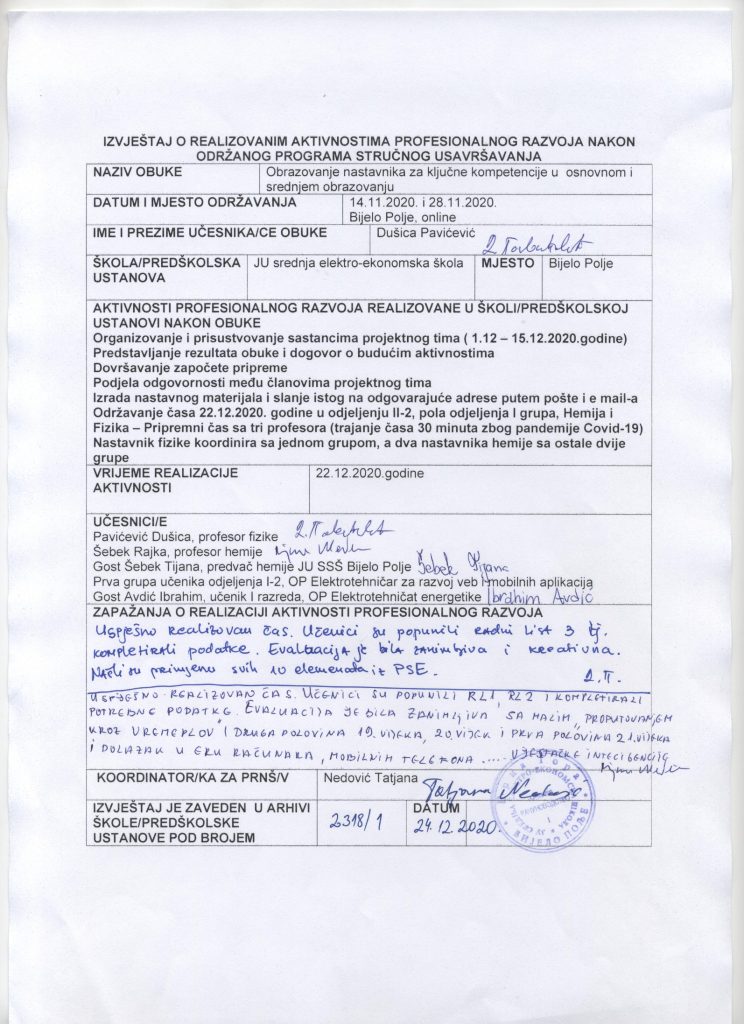 IZVJEŠTAJ O REALIZOVANIM AKTIVNOSTIMA PROFESIONALNOG RAZVOJA NAKON
ODRŽANOG PROGRAMA STRUČNOG USAVRŠAVANJA
NAZIV OBUKE
Obrazovanje nastavnika za ključne kompetencije u osnovnom i
srednjem obrazovanju
DATUM I MJESTO ODRŽAVANJA
14.11.2020. i 28.11.2020.
Bijelo Polje, online
IME I PREZIME UČESNIKA/CE OBUKE
Dušica Pavićević
ŠKOLA/PREDŠKOLSKA
USTANOVA
JU srednja elektro-ekonomska škola
MJESTO
Bijelo Polje
AKTIVNOSTI PROFESIONALNOG RAZVOJA REALIZOVANE U ŠKOLI/PREDŠKOLSKOJ
USTANOVI NAKON OBUKE
Organizovanje i prisustvovanje sastancima projektnog tima ( 1.12 – 15.12.2020.godine)
Predstavljanje rezultata obuke i dogovor o budućim aktivnostima
Dovršavanje započete pripreme
Podjela odgovornosti među članovima projektnog tima
Izrada nastavnog materijala i slanje istog na odgovarajuće adrese putem pošte i e mail-a
Održavanje časa 22.12.2020. godine u odjeljenju II-2, pola odjeljenja I grupa, Hemija i
Fizika – Pripremni čas sa tri profesora (trajanje časa 30 minuta zbog pandemije Covid-19)
Nastavnik fizike koordinira sa jednom grupom, a dva nastavnika hemije sa ostale dvije
grupe
VRIJEME REALIZACIJE
AKTIVNOSTI
22.12.2020.godine
UČESNICI/E
Pavićević Dušica, profesor fizike
Šebek Rajka, profesor hemije
Gost Šebek Tijana, predvač hemije JU SSŠ Bijelo Polje Šebek Tijana
Prva grupa učenika odjeljenja I-2, OP Elektrotehničar za razvoj veb i mobilnih aplikacija
Gost Avdić Ibrahim, učenik I razreda, OP Elektrotehničat energetike Ibrahim Avdić
ZAPAŽANJA O REALIZACIJI AKTIVNOSTI PROFESIONALNOG RAZVOJA
Uspješno realizovan čas. Učenici su popunili radni list 3 tj.
kompletirali podatke. Evaluacija je bila zanimljiva i kreativna.
Našli su primjenu svih 10 elemenata iz PSE. D.P.
USPJEŠNO REALIZOVAN ČAS. UČENICI SU POPUNILI RL1, RL2 I KOMPLETIRALI
POTREBNE PODATKE. EVALUACIJA JE BILA ZANIMLJIVA SA MALIM „PROPUTOVANJEM
KROZ VREMEPLOV" I DRUGA POLOVINA 19. VIJEKA, 20. VIJEK I PRVA POLOVINA 21. VIJEKA
I DOLAZAK U ERU RAČUNARA, MOBILNIH TELEFONA ..... VJEŠTAČKE INTELIGENCIJE
KOORDINATOR/KA ZA PRNŠ/V
Nedović Tatjana
Tatjana Nedović
IZVJEŠTAJ JE ZAVEDEN U ARHIVI
ŠKOLE/PREDŠKOLSKE
USTANOVE POD BROJEM
2318/1
DATUM
24.12.2020.
БИЈЕЛО ПОЉЕ